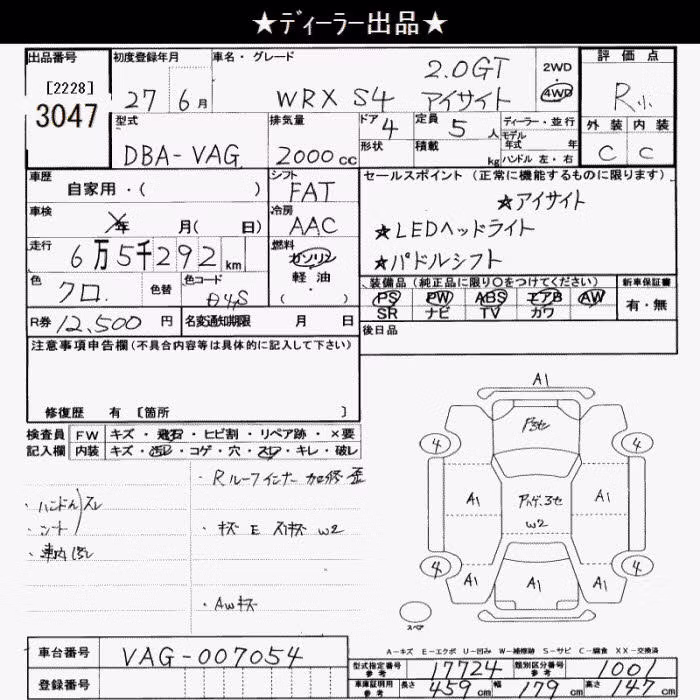 ★ディーラー出品★
出品番号 初度登録年月 車名・グレード 評価点
[2228]
3047
27 6月 WRX S4 2.0GT アイサイト 2WD 4WD R小
型式 排気量 ドア 4 定員 5人 ディーラー・並行 外装 内装
DBA-VAG 2000cc 形状 積載 kg モデル年式 年 C C
ハンドル 左・右
車歴 シフト セールスポイント(正常に機能するものに限ります)
自家用・( ) FAT ★アイサイト
車検 年 月( 日) 冷房 AAC ★LEDヘッドライト
走行 6万5千292km 燃料 ガソリン ★パドルシフト
軽油
( ・ )
色 クロ 色替 色コード D4S
装備品(純正品に限り○をつけてください) 新車保証書
PS PW ABS エアB AW 有・無
SR ナビ TV カワ
R券 12,500円 名変通知期限 月 日
後日品
注意事項申告欄(不具合内容等は具体的に記入して下さい)
修復歴 有 [箇所 ]
検査員 FW キズ・飛石・ヒビ割・リペア跡・×要
記入欄 内装 キズ・汚レ・コゲ・穴・スレ・キレ・破レ
・Rルーフインナー
・ハンドル スレ
・シート
・キズ E スリキズ W2
・車内汚レ
・AWキズ
A1
4 4
A1 W2 A1
4 4
A1 A1 A1
スペア
A-キズ E-エクボ U-凹み W-補修跡 S-サビ C-腐食 XX-交換済
車台番号 VAG-007054
登録番号
型式指定番号 参考 17724 類別区分番号 参考 1001
車庫証明用 参考 長さ 459cm 幅 179cm 高さ 147cm